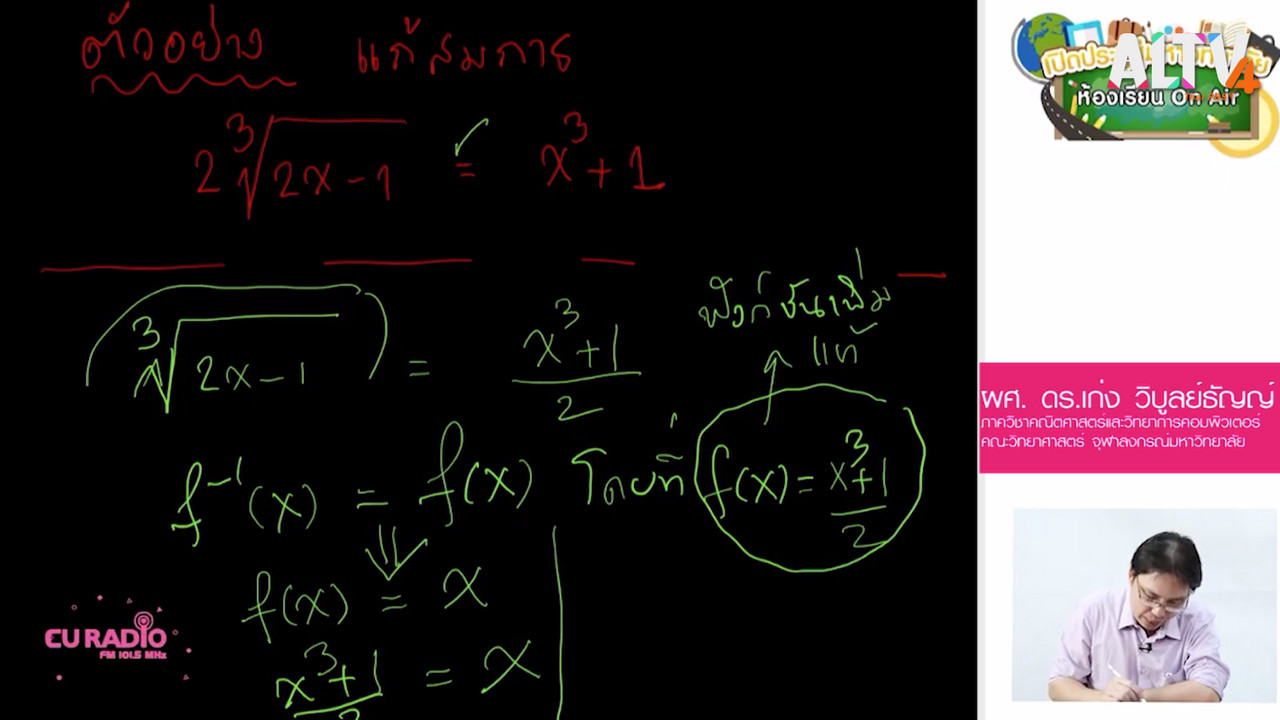 ตัวอย่าง แก้สมการ
2∛(2x-1) = x³+1
∛(2x-1) = (x³+1)/2
ฟังก์ชันเพิ่ม
แท้
f⁻¹(x) = f(x) โดยที่ f(x) = (x³+1)/2
⇓
f(x) = x
(x³+1)/2 = x
ALTV4
ห้องเรียน On Air
ผศ. ดร.เก่ง วิบูลย์ธัญญ์
ภาควิชาคณิตศาสตร์และวิทยาการคอมพิวเตอร์
คณะวิทยาศาสตร์ จุฬาลงกรณ์มหาวิทยาลัย
CU RADIO
FM 101.5 MHz